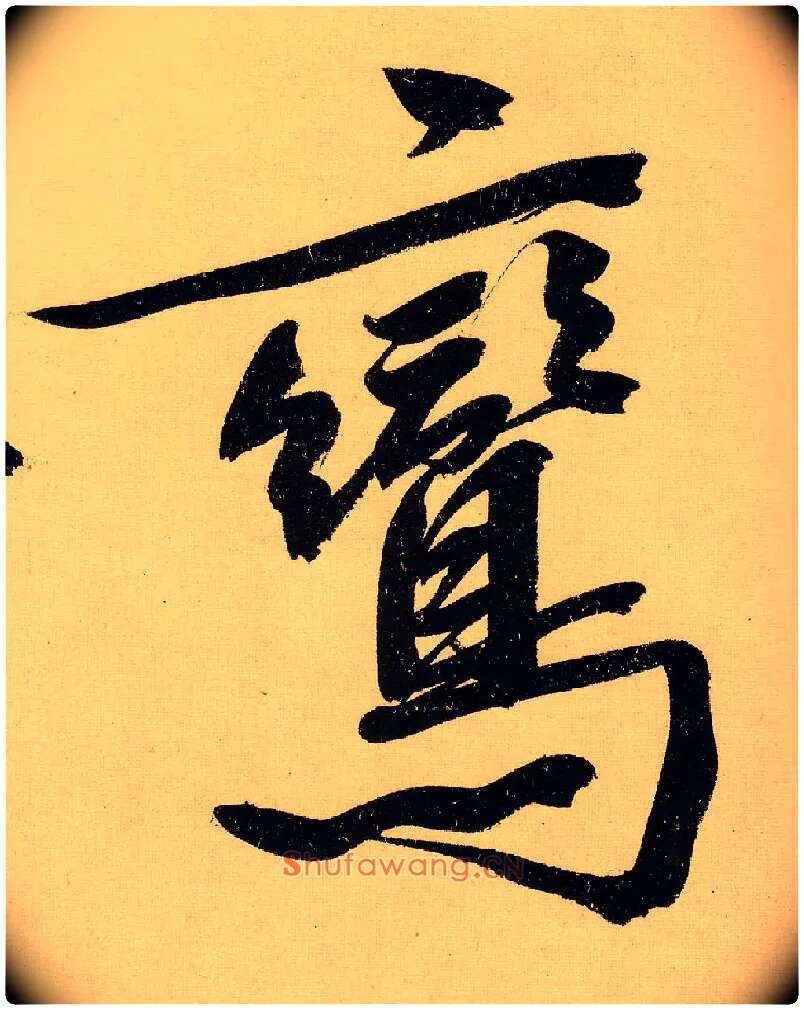 鸞
Shufawang.CN